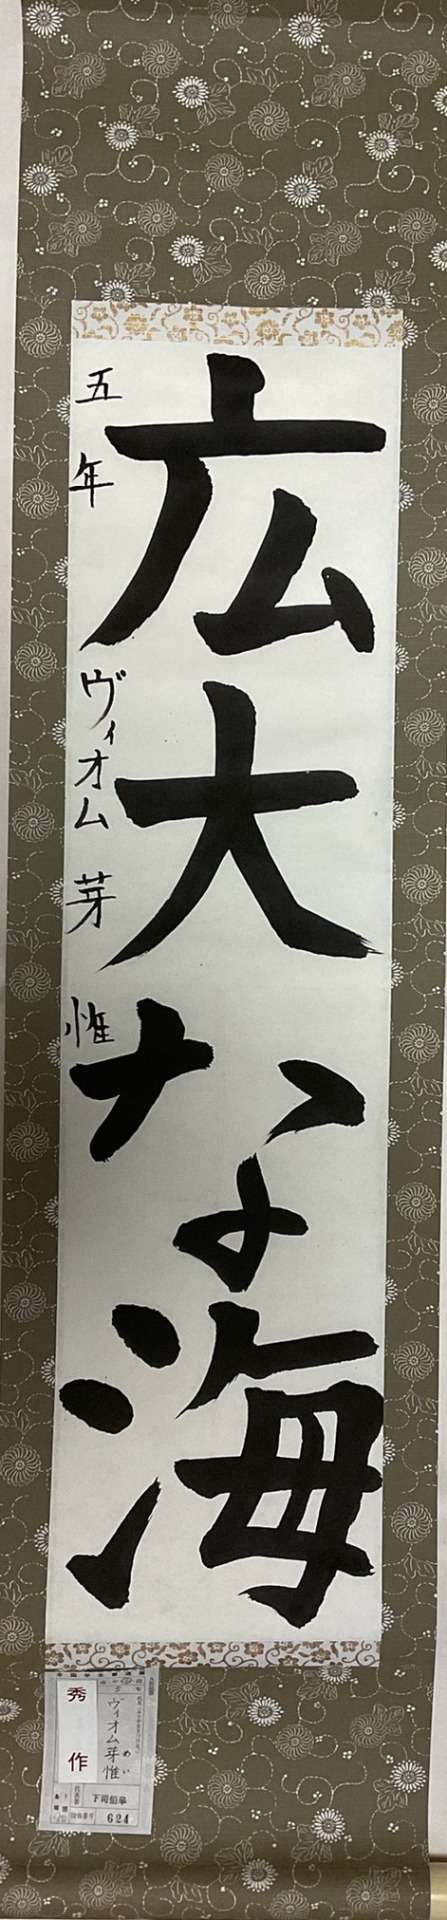 広大な海
五年 ヴィオム 芽惟
秀作
ヴィオム芽惟
めい
624